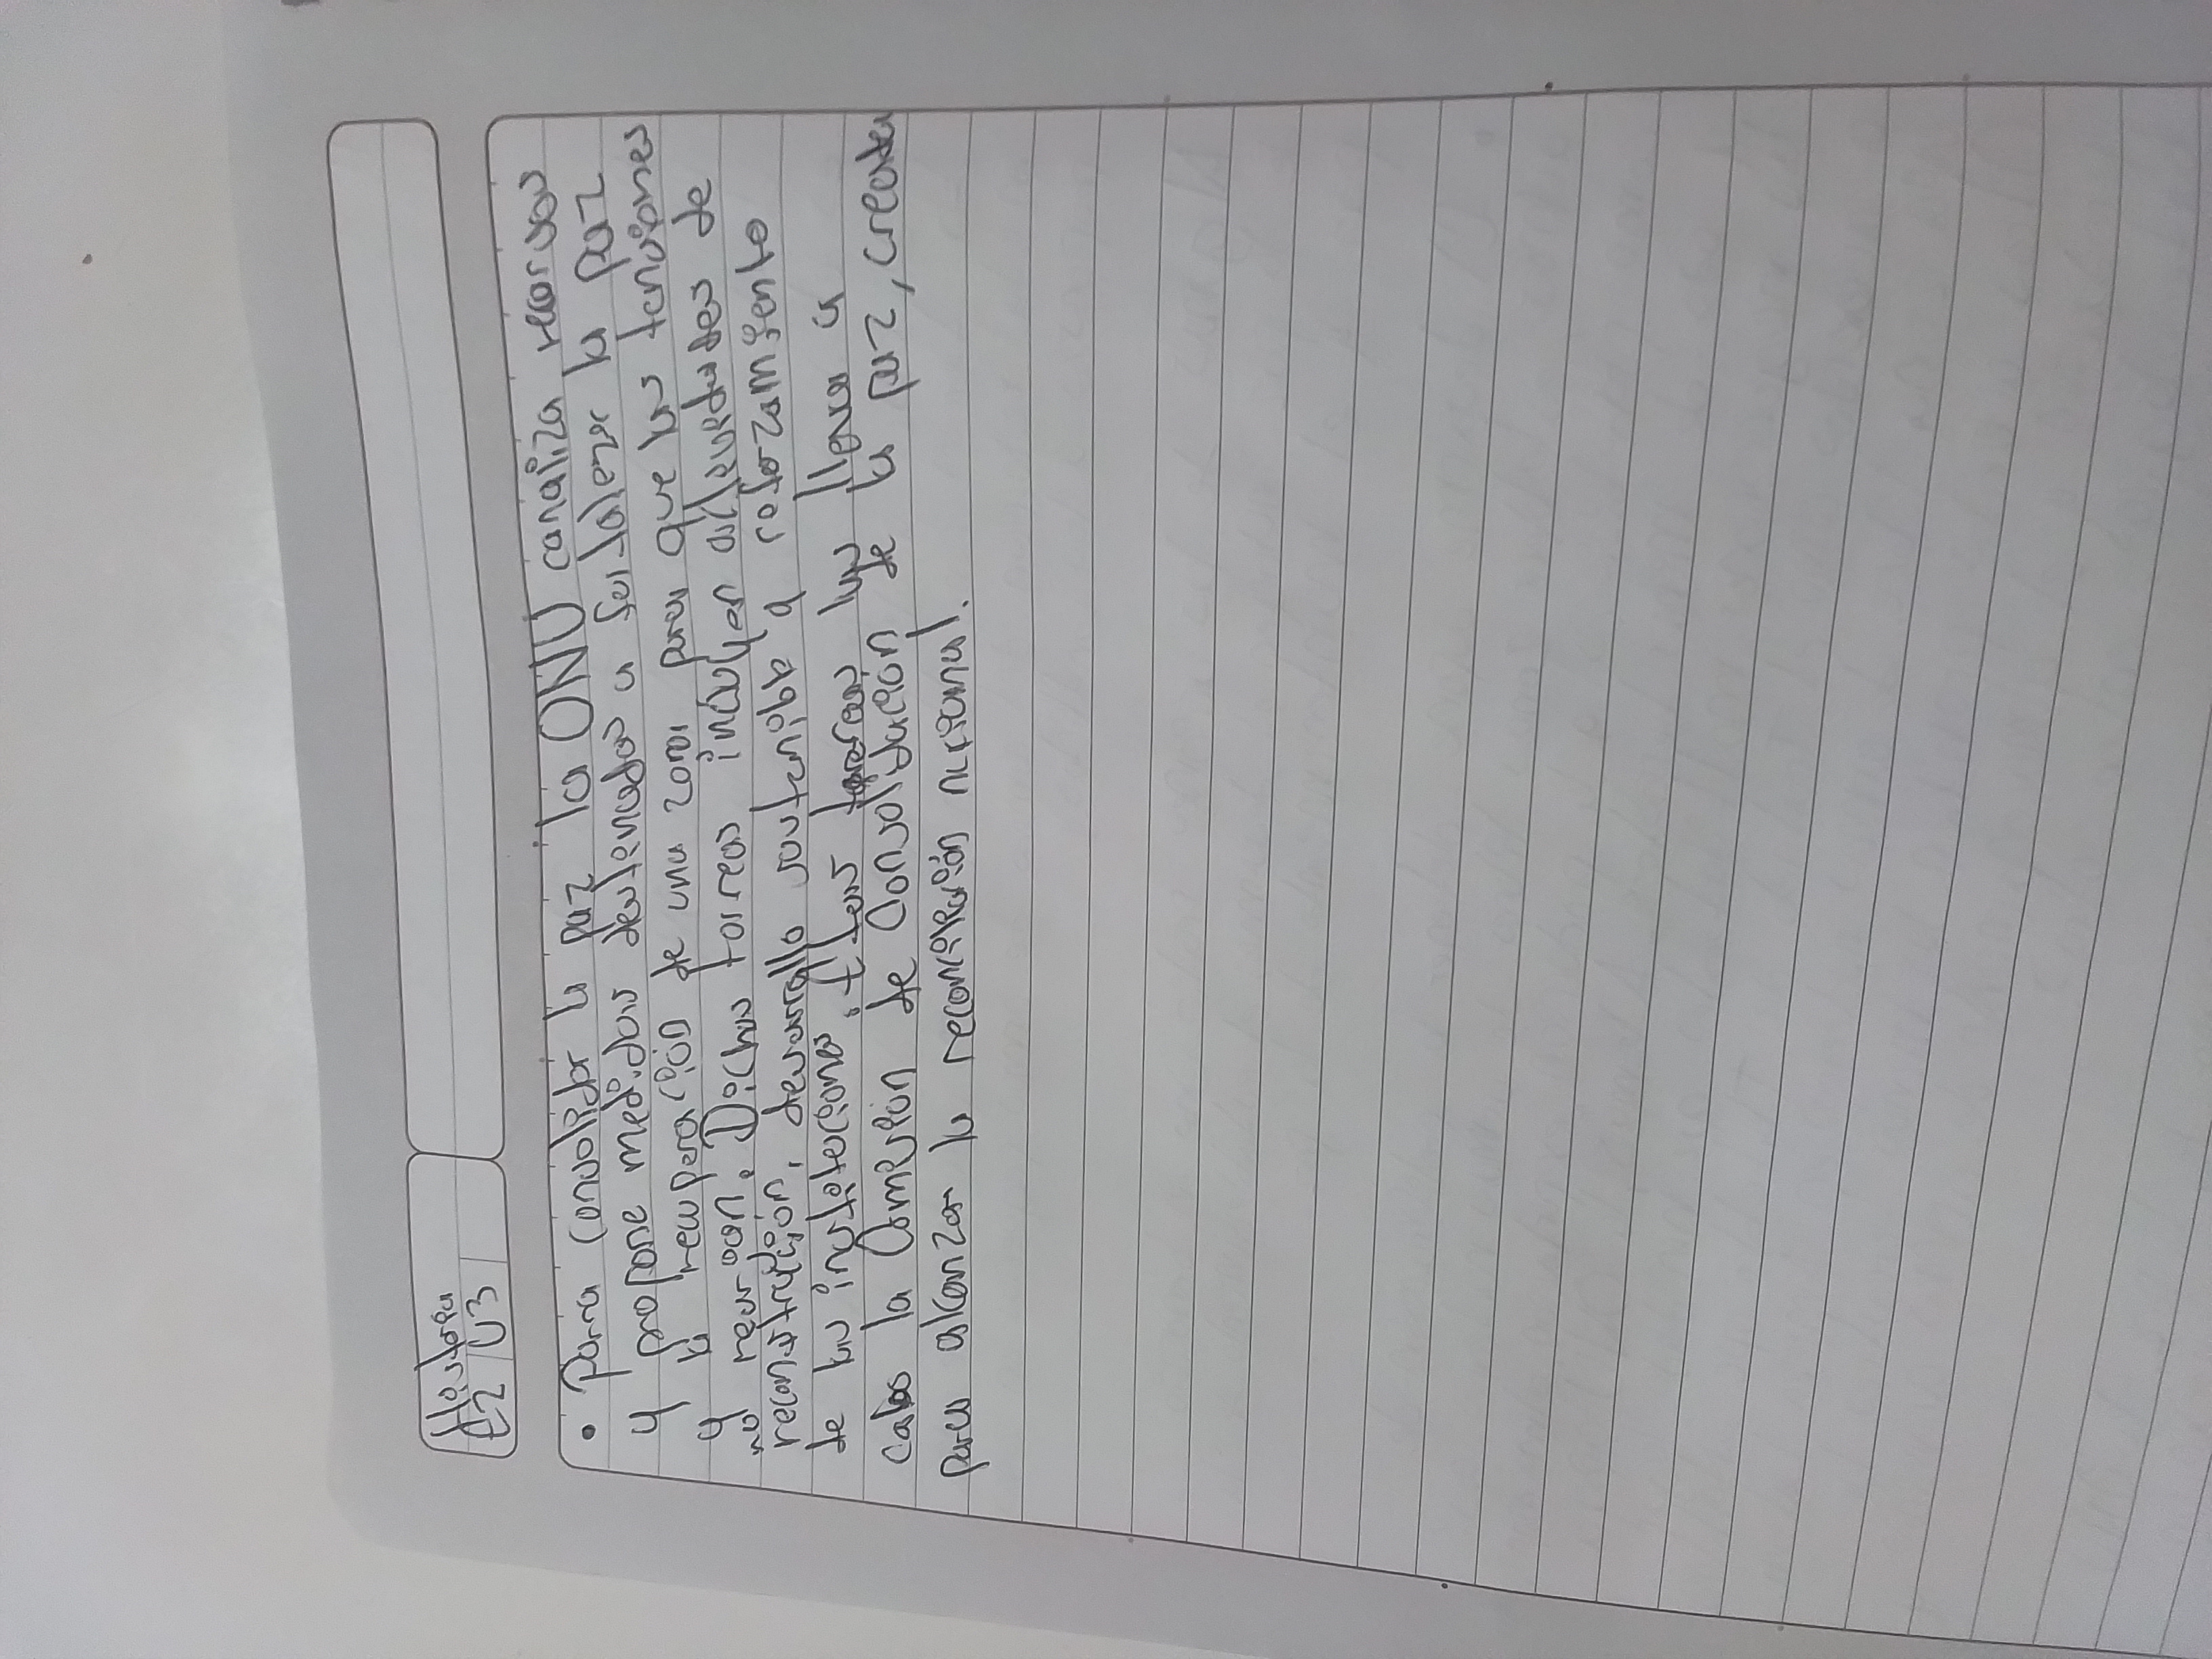 Historia
E2 U3
• Para Consolidar la paz la ONU canaliza recursos
y propone medidas destinadas a fortalezer la paz
y la recuperación de una zona para que las tensiones
no resurjan. Dichas tareas incluyen actividades de
reconstrucción, desarrollo sostenible y reforzamiento
de las instituciones. Estas tareas las lleva a
cabo la Comisión de Consolidación de la paz, creada
para alcanzar la reconciliación nacional.